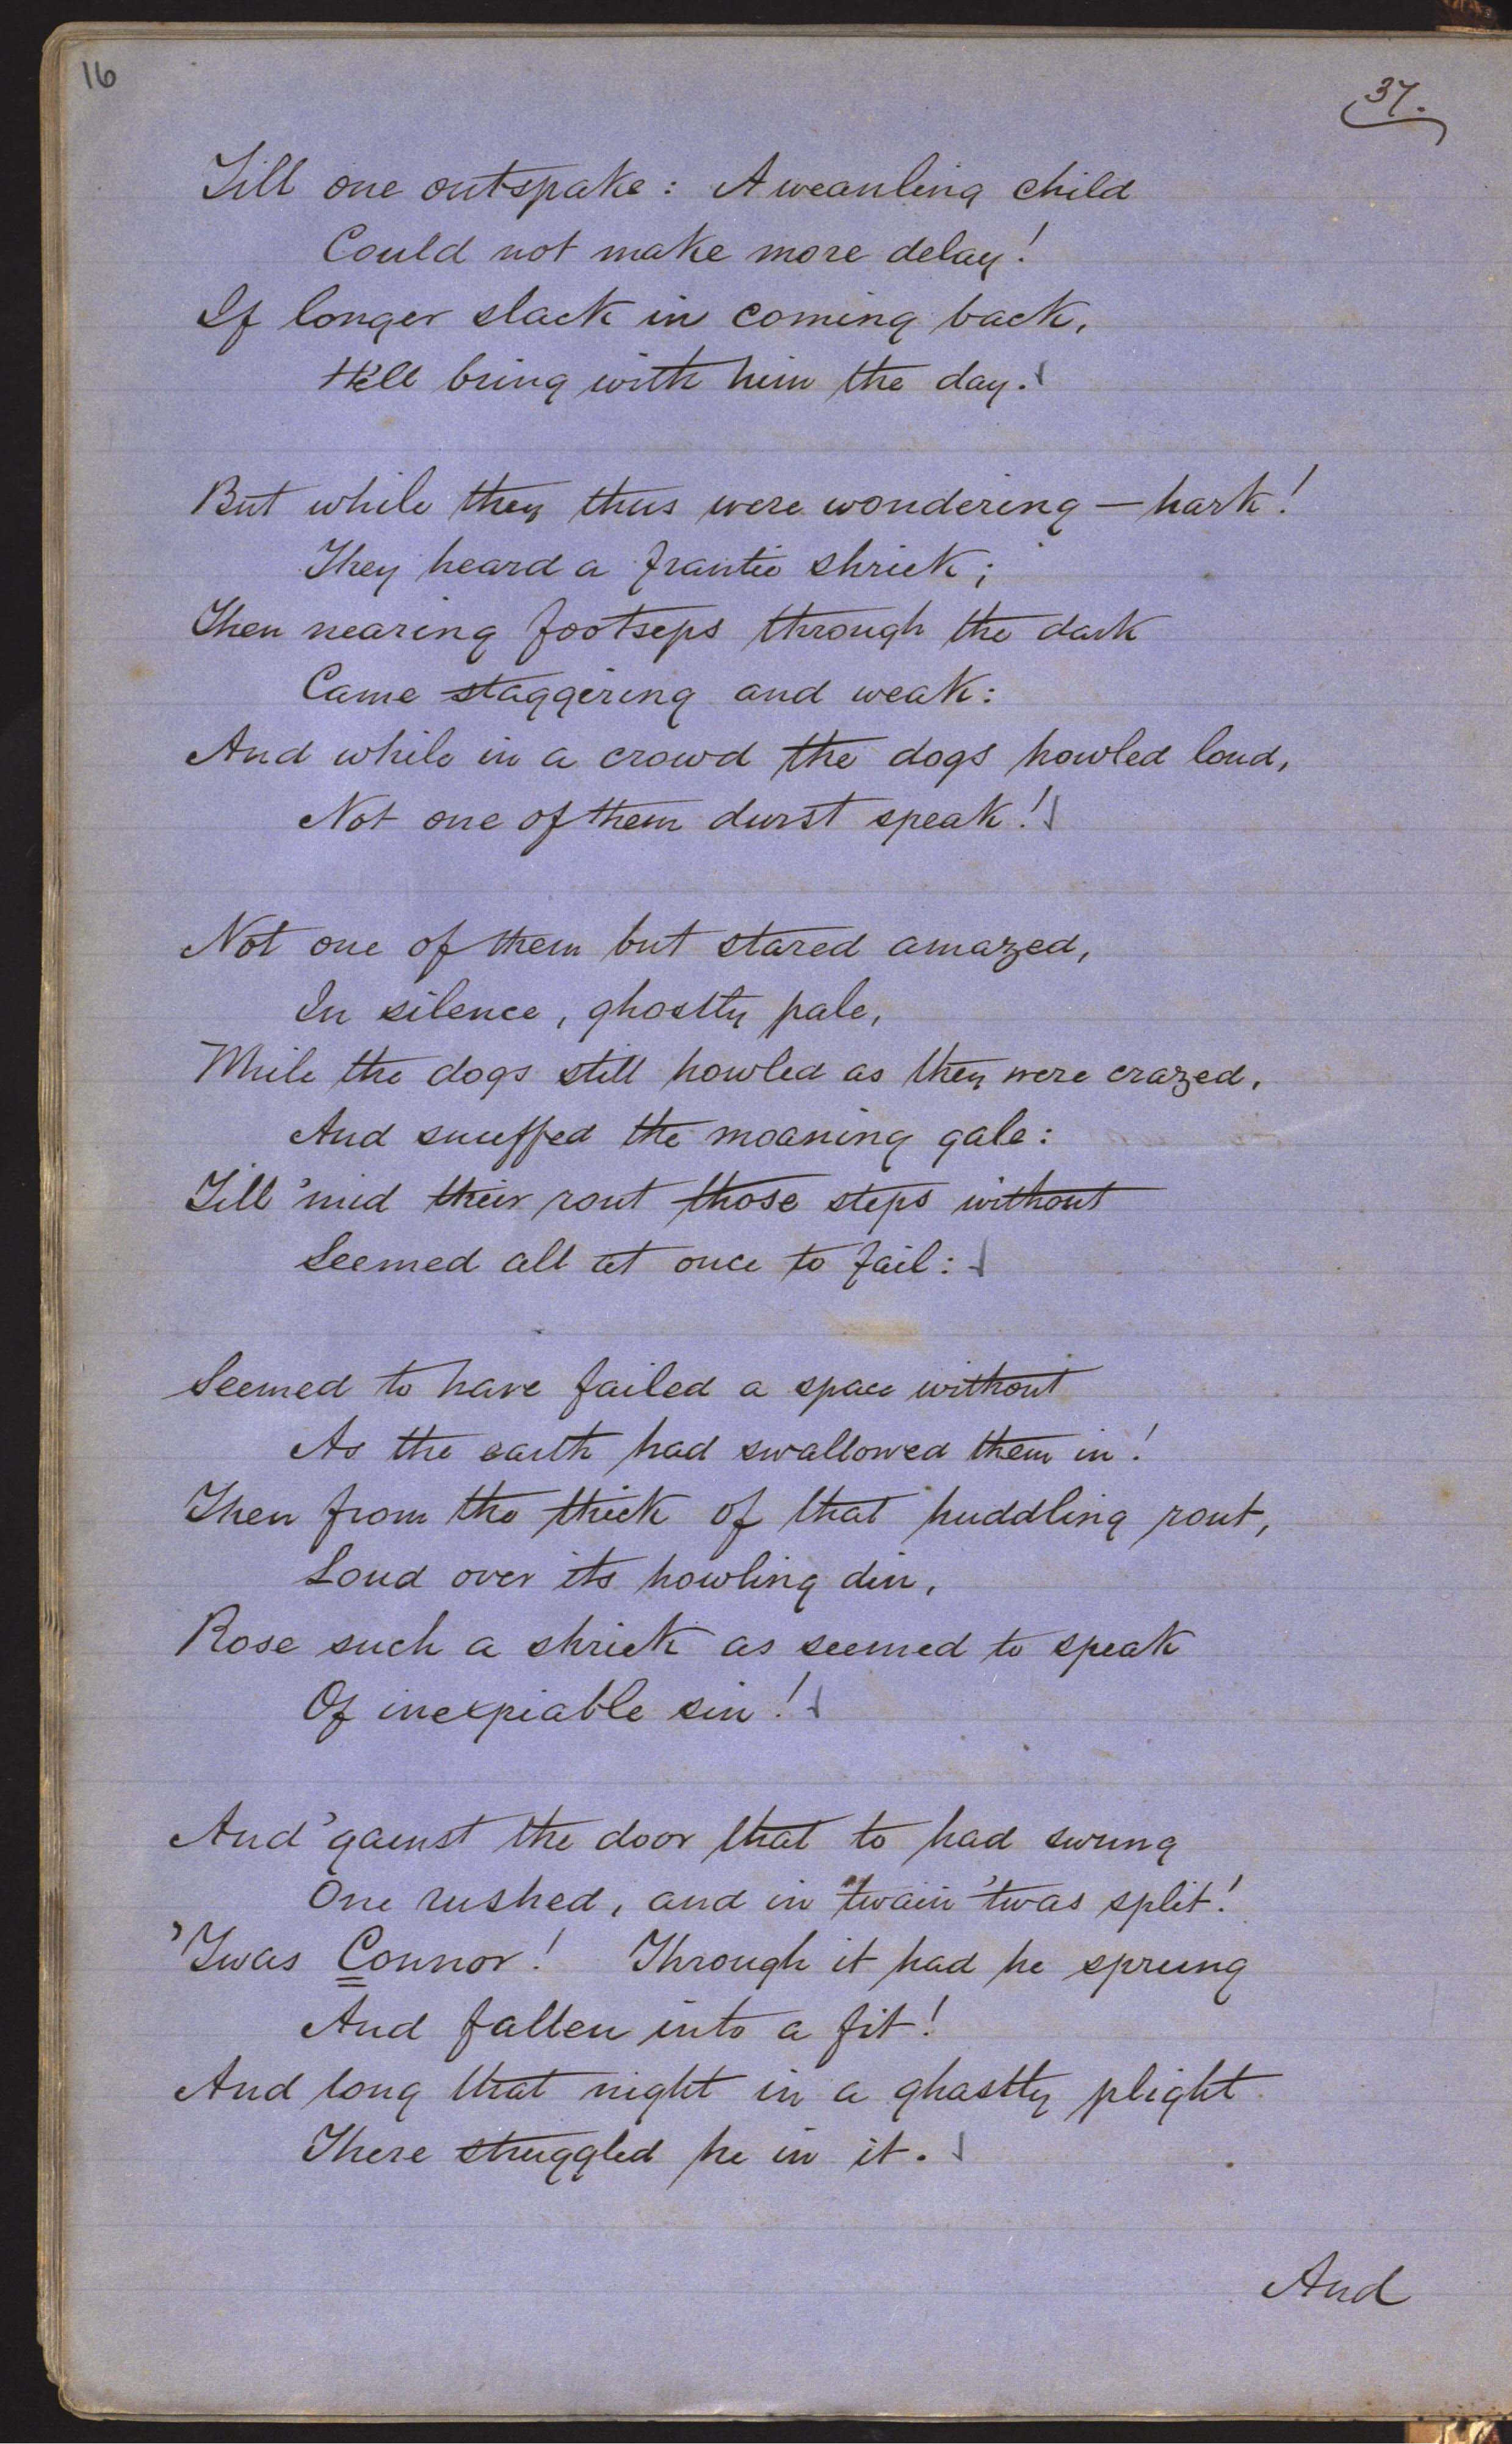 16
37.
Till one outspake: A weanling child
Could not make more delay!
If longer slack in coming back,
He'll bring with him the day.
But while they thus were wondering — hark!
They heard a frantic shriek;
Then nearing footseps through the dark
Came staggering and weak:
And while in a crowd the dogs howled loud,
Not one of them durst speak!
Not one of them but stared amazed,
In silence, ghostly pale,
While the dogs still howled as they were crazed,
And snuffed the moaning gale:
Till 'mid their rout those steps without
Seemed all at once to fail:
Seemed to have failed a space without
As the earth had swallowed them in!
Then from the thick of that huddling rout,
Loud over its howling din,
Rose such a shriek as seemed to speak
Of inexpiable sin!
And 'gainst the door that to had swung
One rushed, and in twain 'twas split!
'Twas Connor! Through it had he sprung
And fallen into a fit!
And long that night in a ghastly plight
There struggled he in it.
And